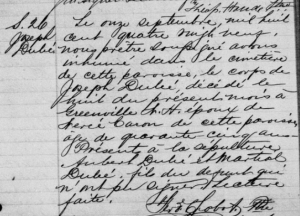 S. 26
Joseph
Dubé
Le onze septembre, mil huit
cent quatre vingt neuf,
nous prêtre soussigné avons
inhumé dans le cimetière
de cette paroisse, le corps de
Joseph Dubé, décédé le
huit du présent mois à
Greenville N. H. époux de
Caron de cette paroisse,
age de quarante cinq ans.
Présent à la sépulture
Hubert Dubé et Martial
Dubé, fils du defunt qui
n'ont pu signer. Lecture
faite.
Ptre